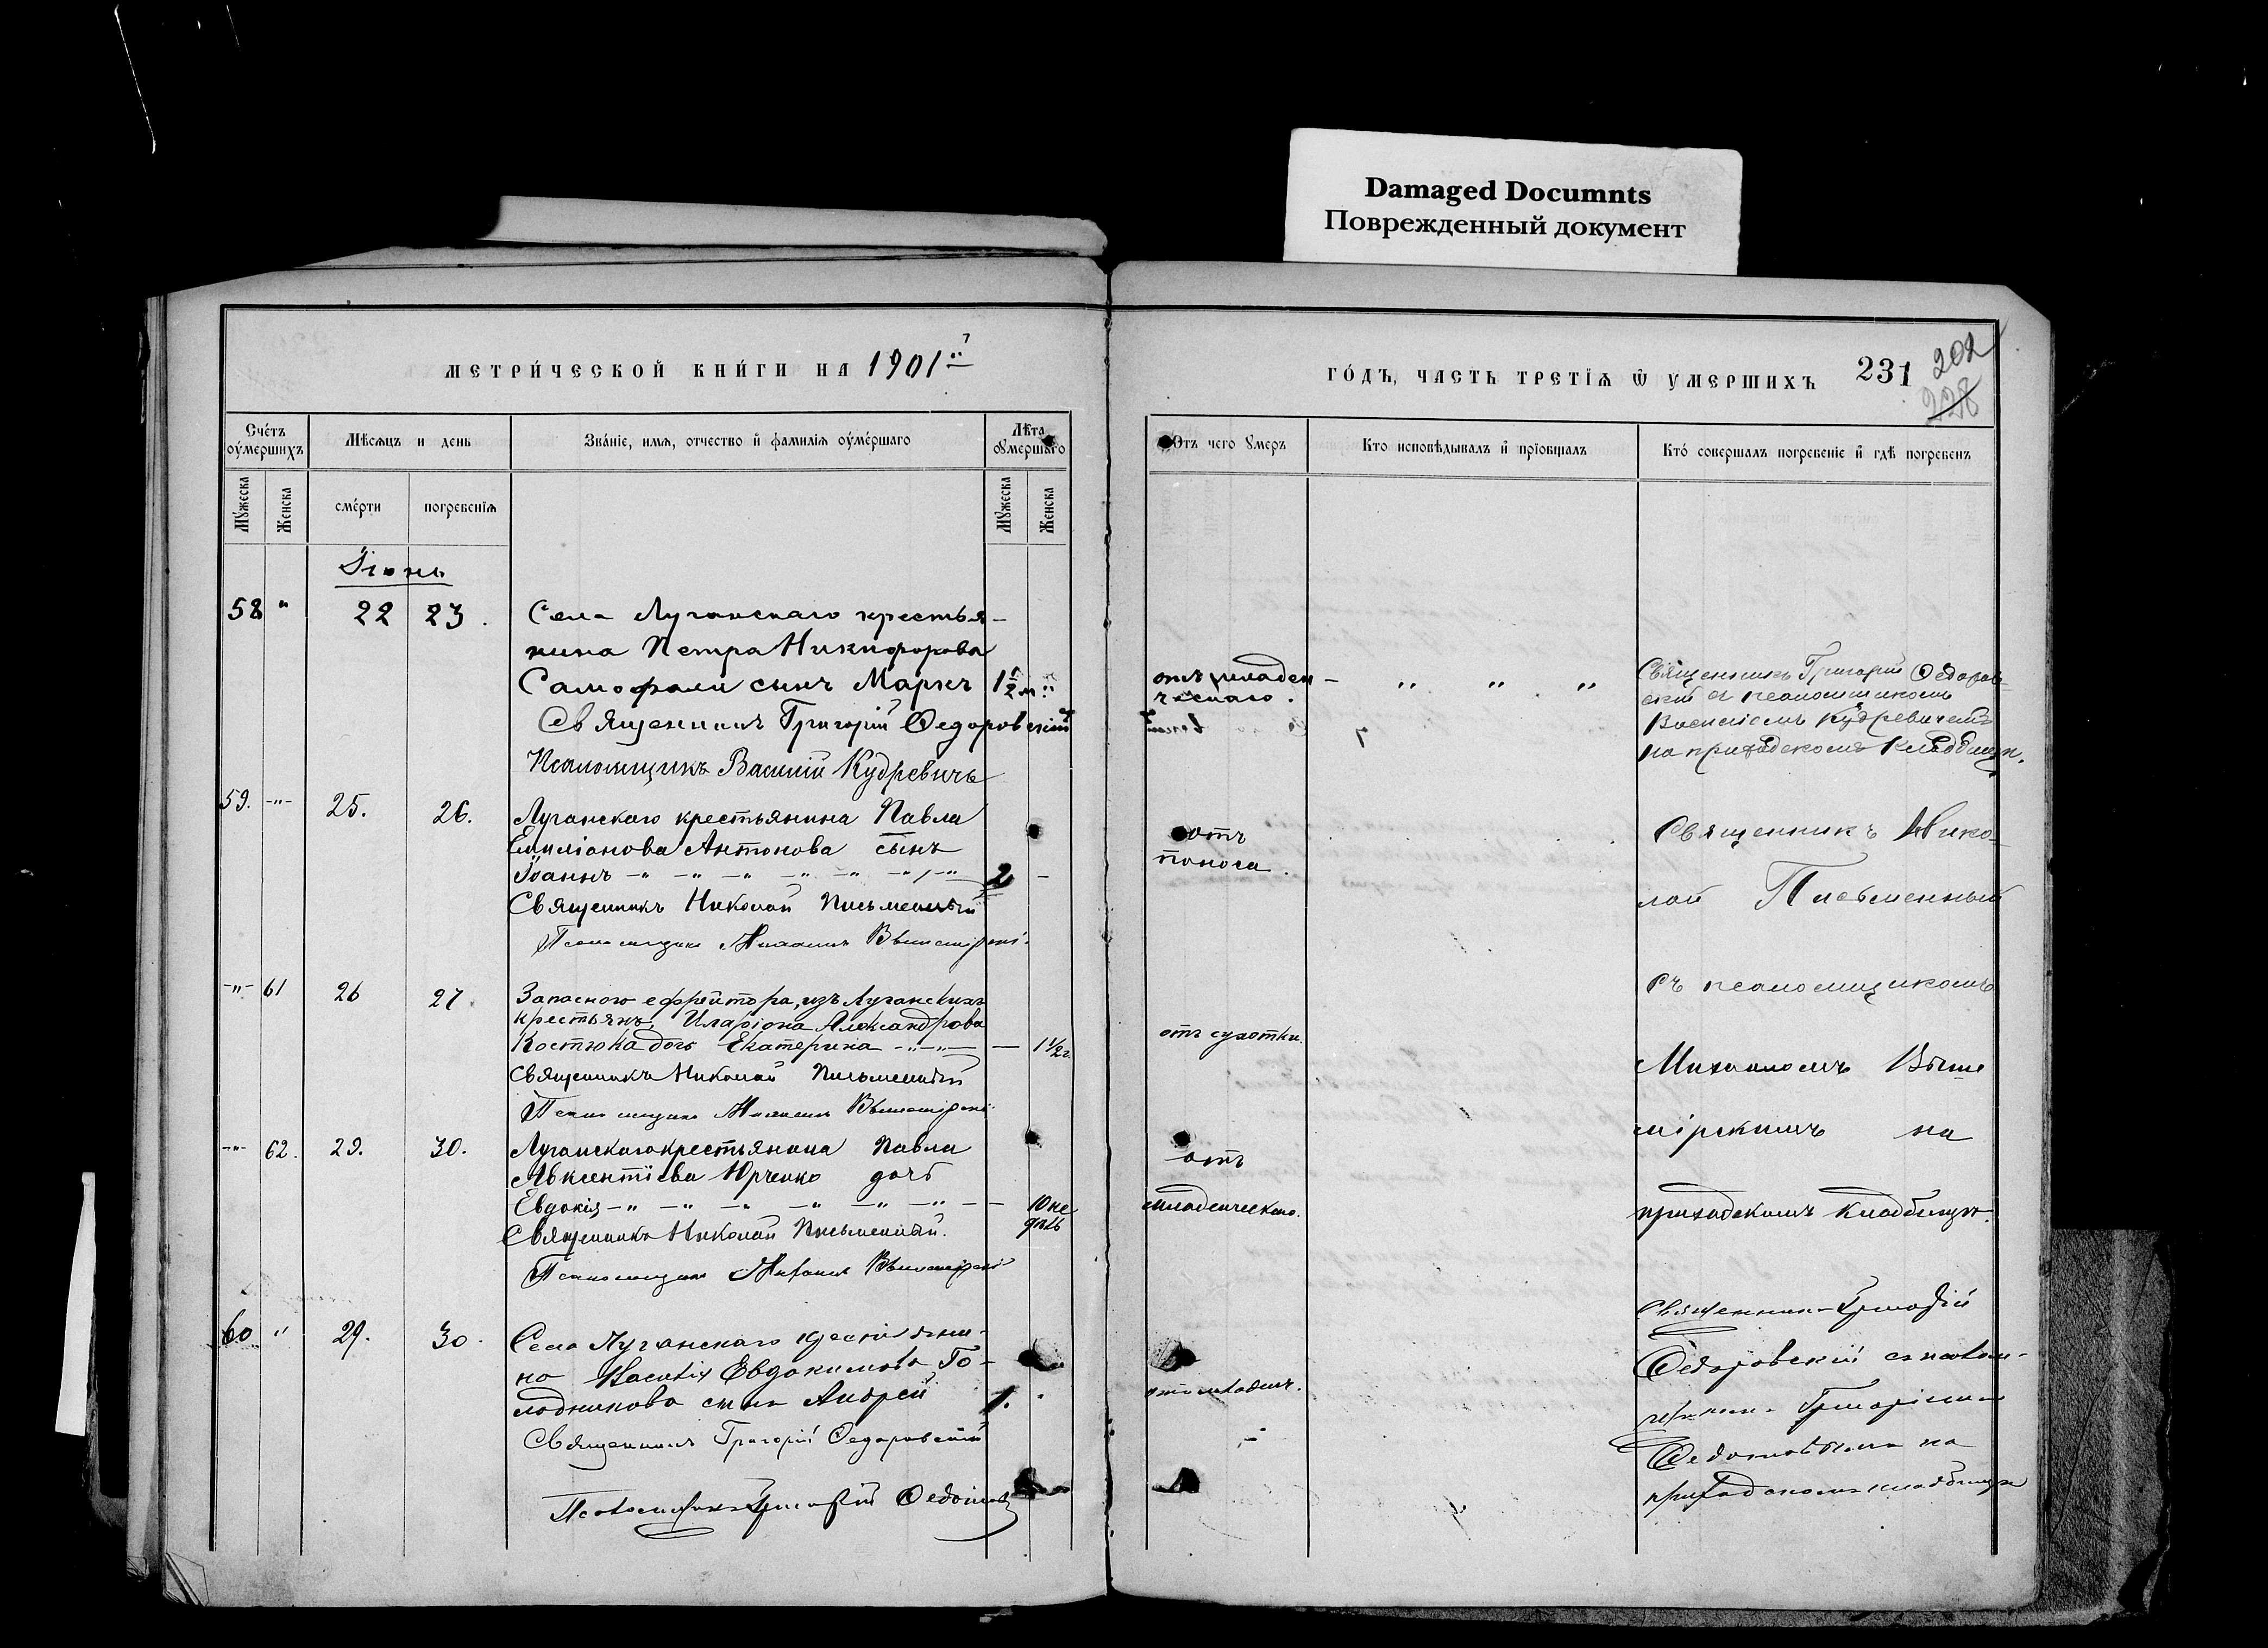 Damaged Documnts
Поврежденный документ
МЕТРИ́ЧЕСКОЙ КНИ́ГИ НА 1901
ГО́ДЪ, ЧАСТЬ ТРЕТІѦ Ѿ УМЕРШИХЪ
231
202
228
Сче́тъ оу́мершихъ
Мѣсѧцъ и день
Зва́ніе, имѧ, отчество и҆ фамиліѧ оу́ме́ршаго
Лѣта оумершаго
Ѿтъ чего ꙋмеръ
Кто исповѣдывалъ и҆ прїобщалъ
Кто́ совершалъ погребенїе и҆ гдѣ погребенъ
Мꙋ́жеска
Женска
сме́рти
погребенїѧ
Мꙋжеска
Женска
Іюнь
58 " 22 23.
Села Луганскаго крестья-
нина Петра Никифорова
Самофали сынъ Маркъ
Священникъ Григорій Ѳедоровскій
Псаломщикъ Василій Кудревичъ
отъ младен-
ческаго.
Священникъ Григорій Ѳедоров-
скій съ псаломщикомъ
Василіемъ Кудревичемъ
на приходскомъ кладбищѣ.
59. -"- 25. 26.
Луганскаго крестьянина Павла
Емиліонова Антонова сынъ
Іоаннъ -"- -"- -"- 2 -
Священникъ Николай Письменный
Псаломщикъ Михаилъ Вышемірскій
отъ
поноса.
Священникъ Нико-
лай Письменный
-"- 61 26 27.
Запаснаго ефрейтора, изъ Луганскихъ
крестьянъ, Иларіона Александрова
Костюка дочь Екатерина -"-"- — 1 1/2 г.
Священникъ Николай Письменный
Псаломщикъ Михаилъ Вышемірскій
отъ сухотки.
съ псаломщикомъ
Михаиломъ Выше
мірскимъ на
приходскомъ кладбищѣ.
-"- 62. 29. 30.
Луганскаго крестьянина Павла
Авксентіева Юрченко дочь
Евдокія -"- -"- -"- 10 не
дѣль
Священникъ Николай Письменный.
Псаломщикъ Михаилъ Вышемірскій
отъ
младенческаго.
60 " 29. 30.
Села Луганскаго крестьяни-
на Евдокимова Го-
лодникова сынъ Андрей 1. "
Священникъ Григорій Ѳедоровскій
Псаломщикъ Григорій Ѳедотовъ
отъ младенч.
Священникъ Григорій
Ѳедоровскій съ псалом-
щикомъ Григоріемъ
Ѳедотовымъ на
приходскомъ кладбищѣ